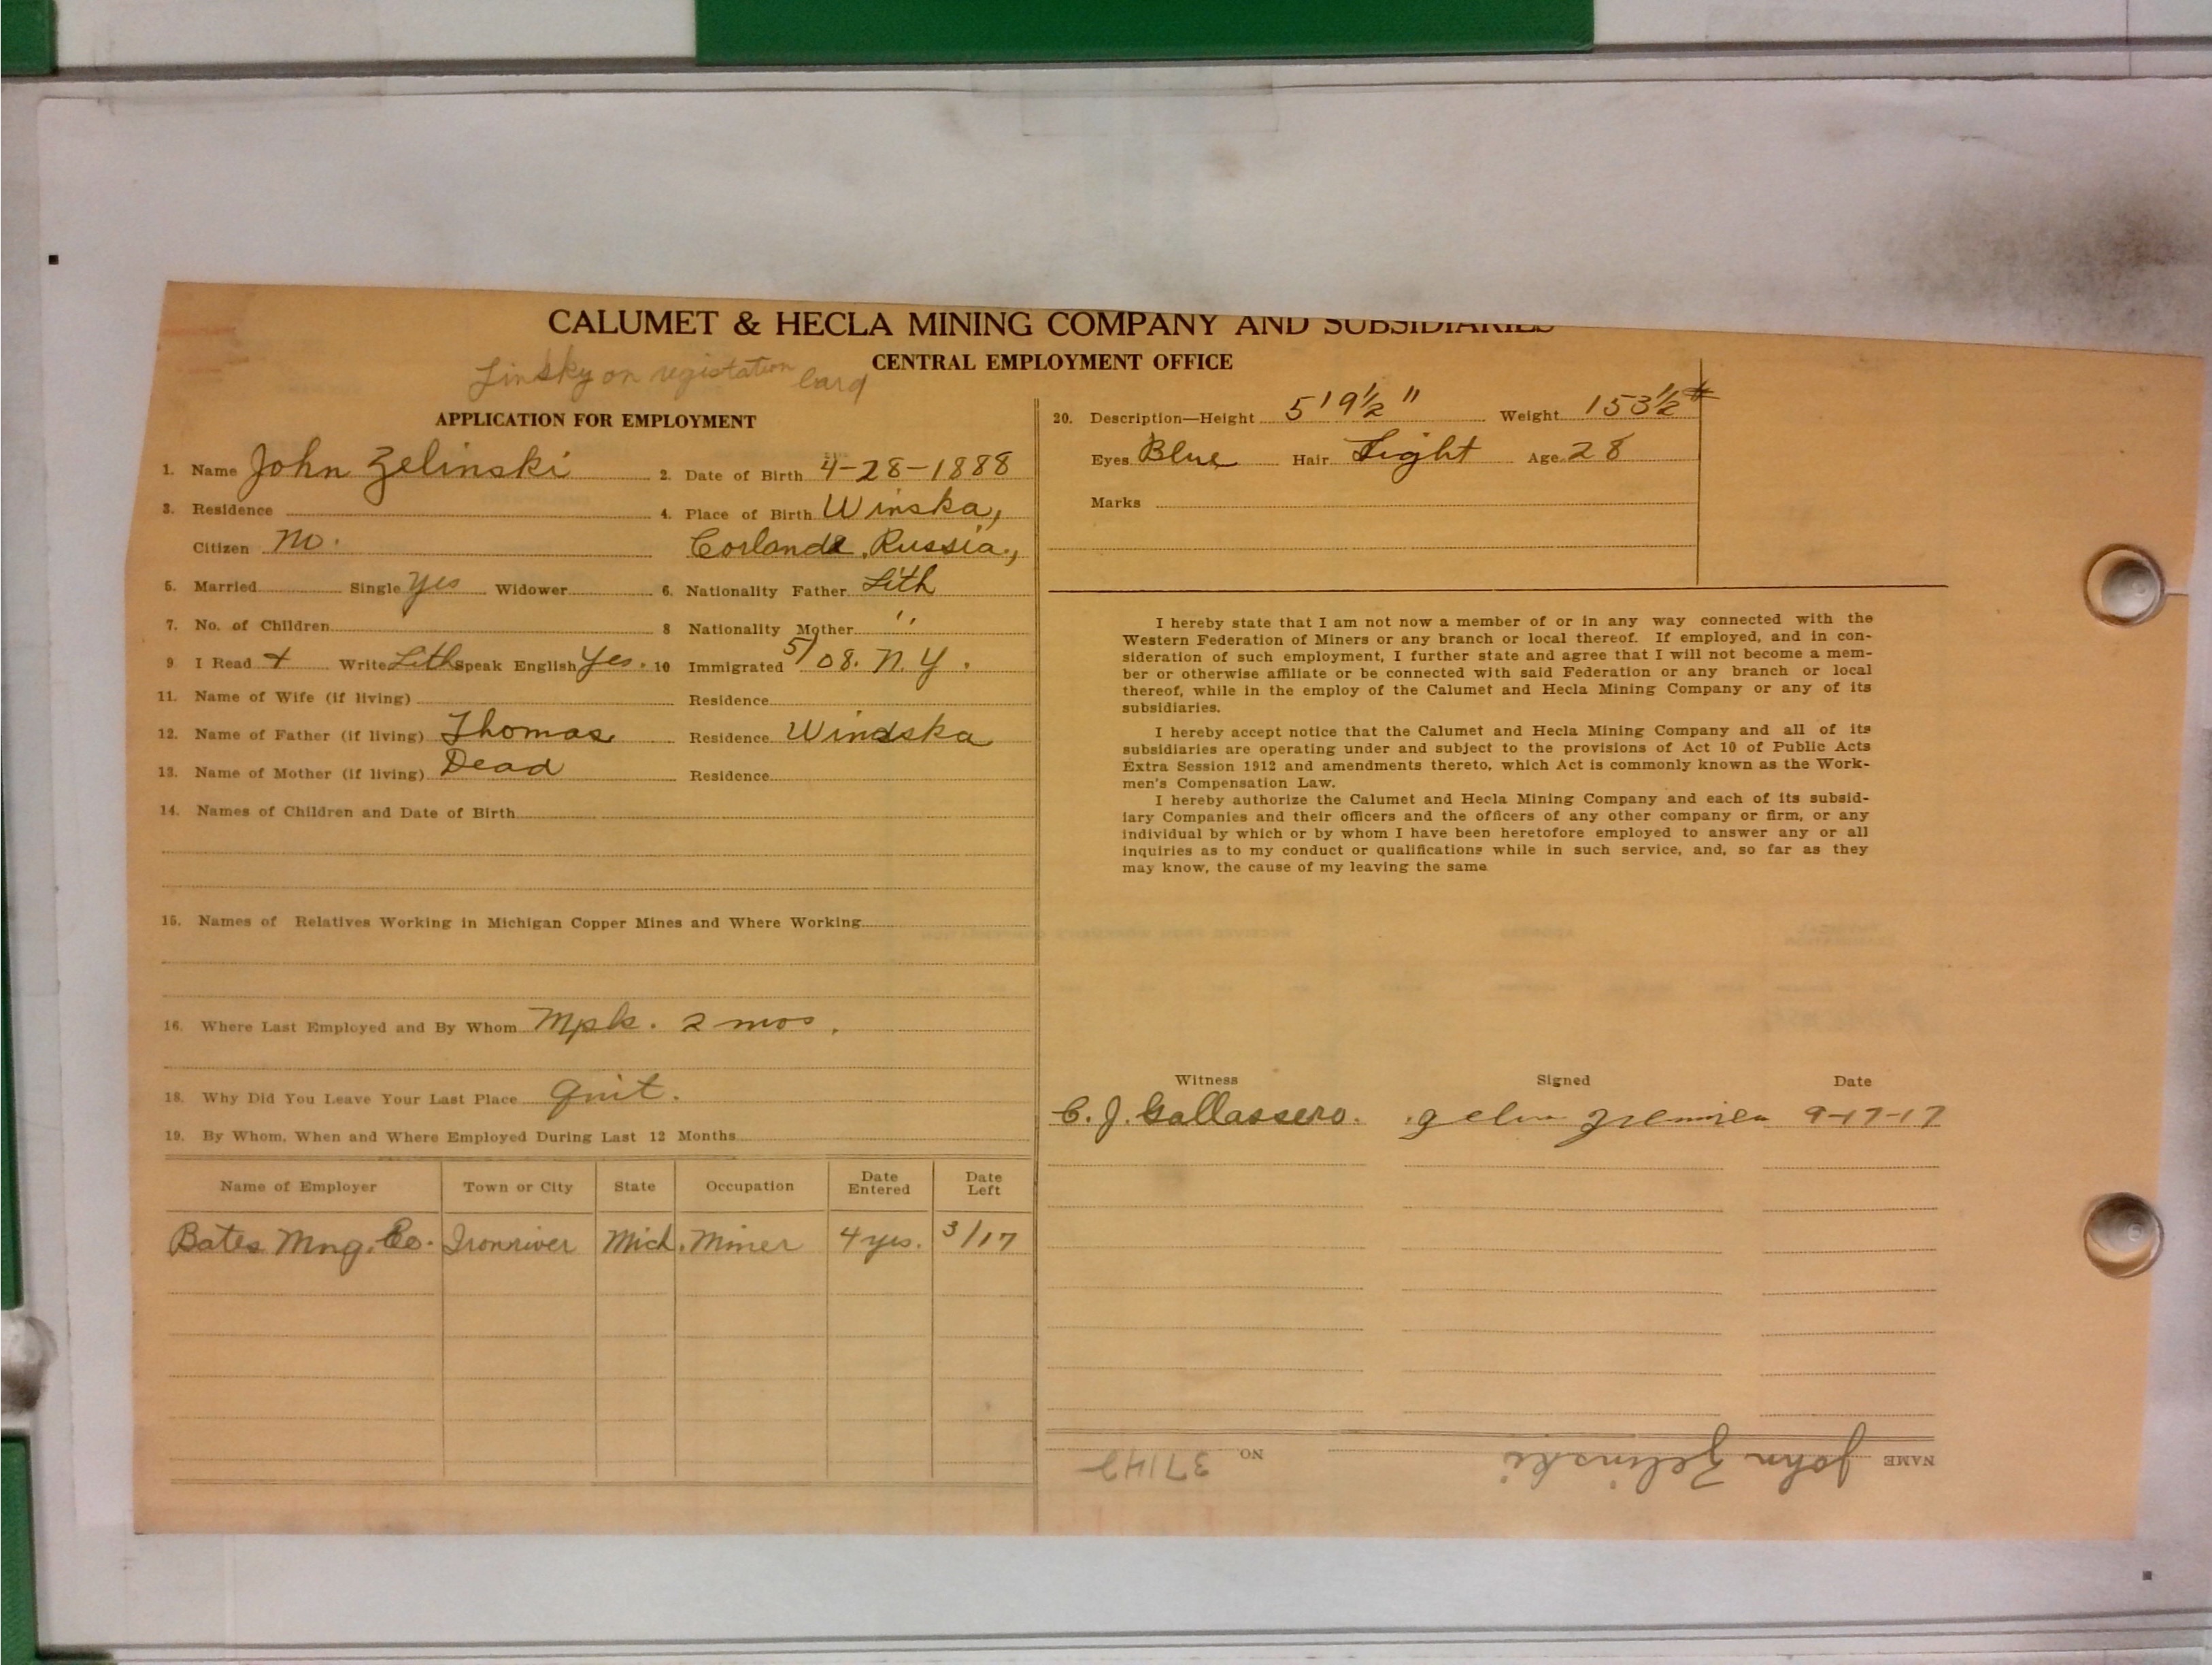 CALUMET & HECLA MINING COMPANY AND SUBSIDIARIES
CENTRAL EMPLOYMENT OFFICE
Linsky on registation Card
APPLICATION FOR EMPLOYMENT
1. Name John Zelinski 2. Date of Birth 4-28-1888
3. Residence 4. Place of Birth Winska,
Citizen no. Corland, Russia,
5. Married Single yes Widower 6. Nationality Father Lith
7. No. of Children 8 Nationality Mother "
9 I Read + Write Lith Speak English Yes. 10 Immigrated 5/08. N.Y.
11. Name of Wife (if living) Residence
12. Name of Father (if living) Thomas Residence Windska
13. Name of Mother (if living) Dead Residence
14. Names of Children and Date of Birth
15. Names of Relatives Working in Michigan Copper Mines and Where Working
16. Where Last Employed and By Whom Mpls. 2 mos.
18. Why Did You Leave Your Last Place Quit.
19. By Whom, When and Where Employed During Last 12 Months
Name of Employer Town or City State Occupation Date Entered Date Left
Bates Mng. Co. Ironriver Mich. Miner 4 yrs. 3/17
20. Description—Height 5' 9½" Weight 153½ #
Eyes Blue Hair Light Age 28
Marks
I hereby state that I am not now a member of or in any way connected with the
Western Federation of Miners or any branch or local thereof. If employed, and in con-
sideration of such employment, I further state and agree that I will not become a mem-
ber or otherwise affiliate or be connected with said Federation or any branch or local
thereof, while in the employ of the Calumet and Hecla Mining Company or any of its
subsidiaries.
I hereby accept notice that the Calumet and Hecla Mining Company and all of its
subsidiaries are operating under and subject to the provisions of Act 10 of Public Acts
Extra Session 1912 and amendments thereto, which Act is commonly known as the Work-
men's Compensation Law.
I hereby authorize the Calumet and Hecla Mining Company and each of its subsid-
iary Companies and their officers and the officers of any other company or firm, or any
individual by which or by whom I have been heretofore employed to answer any or all
inquiries as to my conduct or qualifications while in such service, and, so far as they
may know, the cause of my leaving the same
Witness Signed Date
C. J. Gallassero. 9-17-17
NAME John Zelinski NO 37142